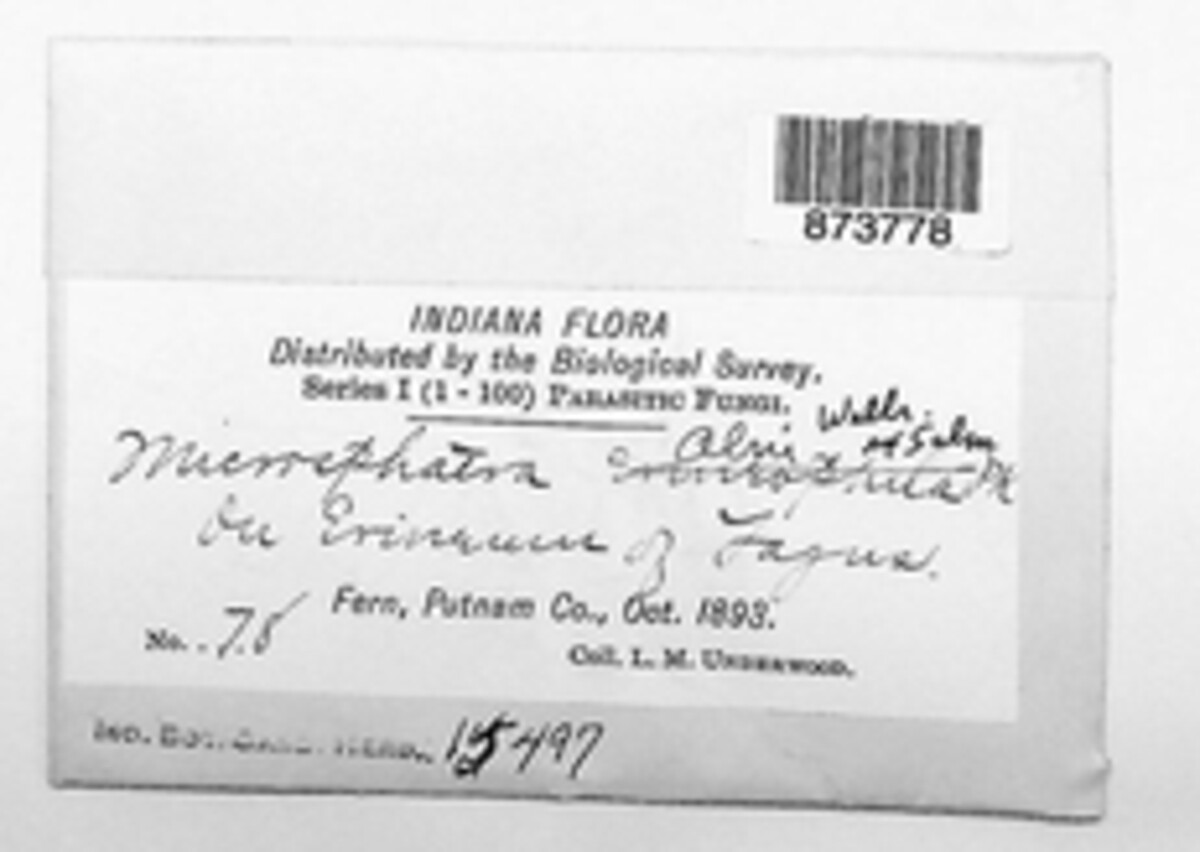 873778
INDIANA FLORA
Distributed by the Biological Survey.
Series I (1 - 100) PARASITIC FUNGI.
Wallr.
Alni
Microsphaera erineophila Pk
On Erineum of Fagus.
Fern, Putnam Co., Oct. 1893.
No. 78
Coll. L. M. UNDERWOOD.
Mo. Bot. Gard. Herb. 15497